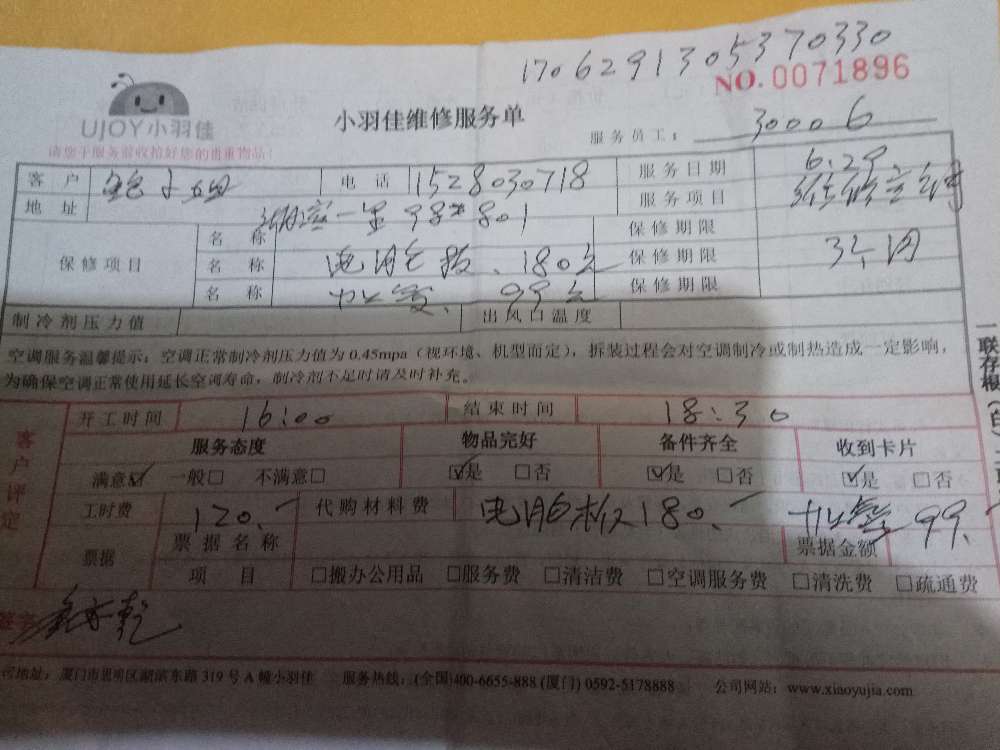 17062913053​70330
NO.0071896
UJOY小羽佳
小羽佳维修服务单
服务员工: 30006
请您于服务前收拾好您的贵重物品!
客户 鲍小姐 电话 1528030718 服务日期 6.29
地址 湖滨一里98# 801 服务项目 维修空调
保修项目 名称 保修期限
名称 电脑板、180元 保修期限 3个月
名称 99元 保修期限
制冷剂压力值 出风口温度
空调服务温馨提示:空调正常制冷剂压力值为0.45mpa(视环境、机型而定),拆装过程会对空调制冷或制热造成一定影响,
为确保空调正常使用延长空调寿命,制冷剂不足时请及时补充。
一联存根
客户评定
开工时间 16:00 结束时间 18:30
服务态度 物品完好 备件齐全 收到卡片
满意☑ 一般□ 不满意□ ☑是 □否 ☑是 □否 ☑是 □否
工时费 120.- 代购材料费 电脑板180.- 99.-
票据 票据名称 票据金额
项目 □搬办公用品 □服务费 □清洁费 □空调服务费 □清洗费 □疏通费
签字
司地址:厦门市思明区湖滨东路319号A幢小羽佳 服务热线:(全国)400-6655-888 (厦门) 0592-5178888 公司网站:www.xiaoyujia.com